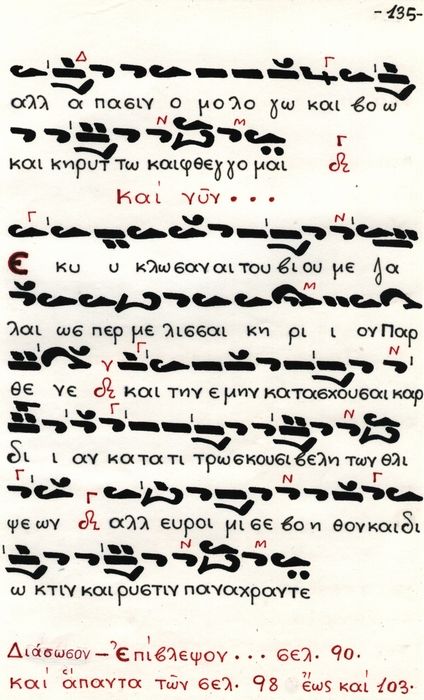 -135-
αλλ α πασιν ο μο λο γω και βο ω
και κηρυτ τω και φθεγγο μαι
Και νῦν . . .
Ε κυ υ κλωσαν αι του βι ου με ζα
λαι ωσ περ με λισσαι κη ρι ι ον Παρ
θε νε και την ε μην κατασχουσαι καρ
δι ι αν κατα τι τρωσκουσι βελη των θλι
ψε ων αλλ ευροι μι σε βο η θον και δι
ω κτιν και ρυστιν παναχραντε
Διάσωσον – Ἐπίβλεψον . . . σελ. 90.
καί ἅπαντα τῶν σελ. 98 ἕως καί 103.